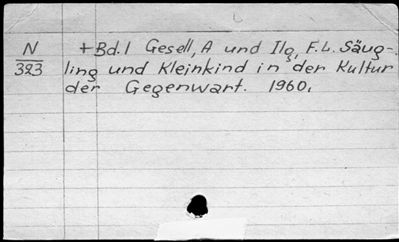 N +Bd.1 Gesell, A und Ilg, F.L. Säug-
323 ling und Kleinkind in der Kultur
der Gegenwart. 1960.